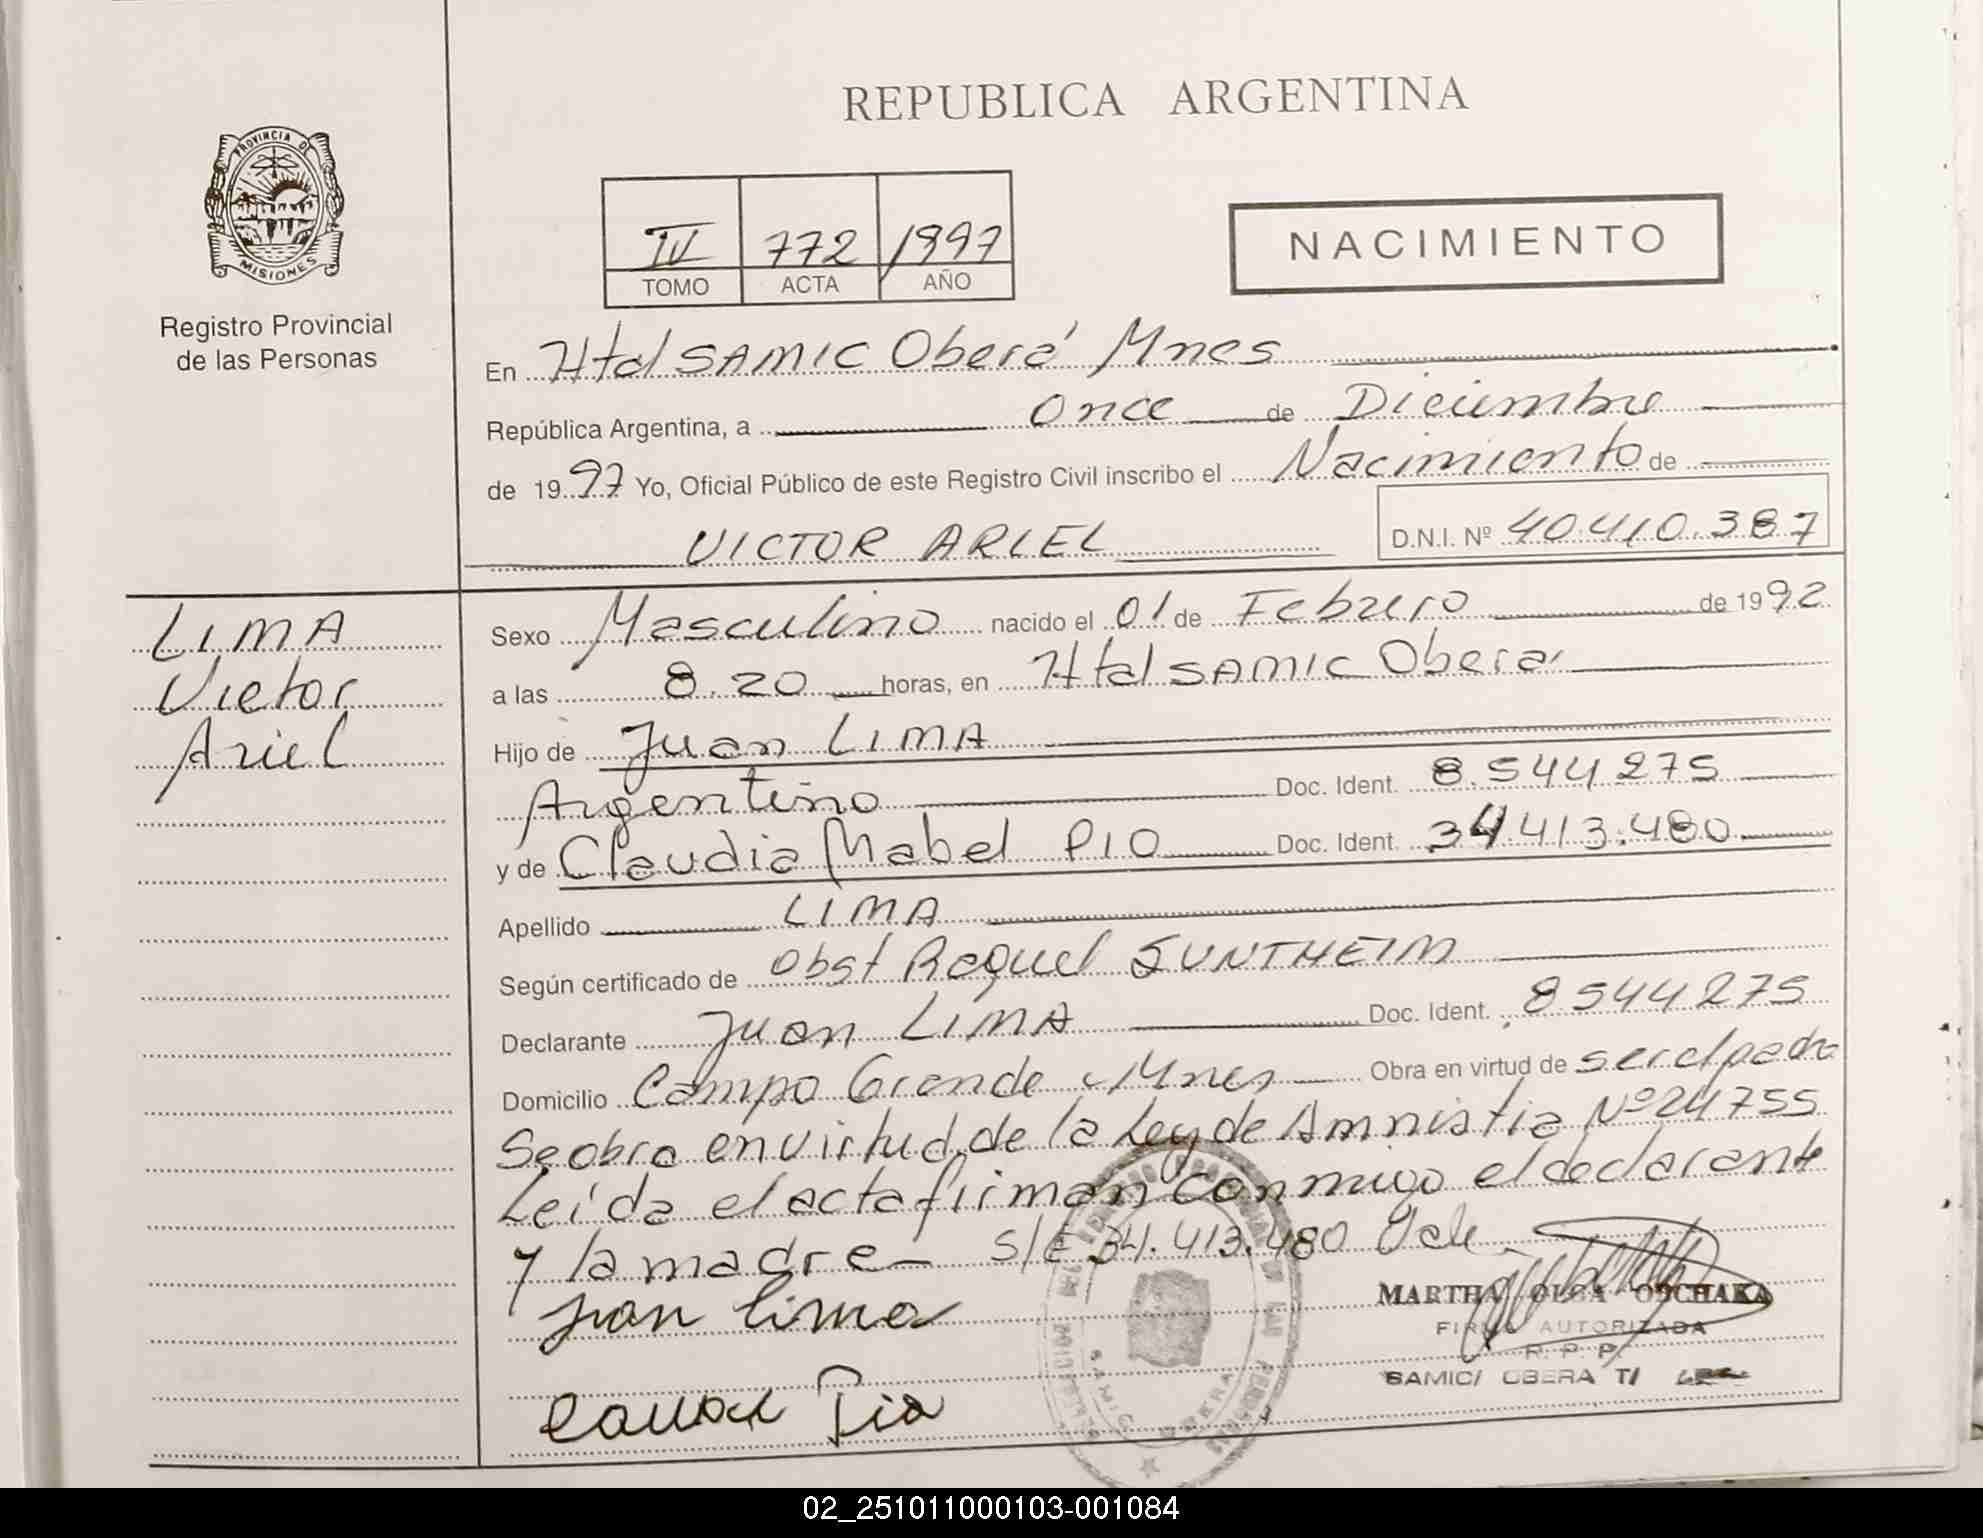 REPUBLICA ARGENTINA
PROVINCIA DE
MISIONES
Registro Provincial
de las Personas
IV 772 1997
TOMO ACTA AÑO
NACIMIENTO
En Htal SAMIC Oberá Mnes
República Argentina, a once de Diciembre
de 1997 Yo, Oficial Público de este Registro Civil inscribo el Nacimiento de
VICTOR ARIEL D.N.I. Nº 40.410.387
LIMA
Victor
Ariel
Sexo Masculino nacido el 01 de Febrero de 1992
a las 8.20 horas, en Htal SAMIC Oberá
Hijo de Juan LIMA
Argentino Doc. Ident. 8.544275
y de Claudia Mabel PIO Doc. Ident. 34.413.480
Apellido LIMA
Según certificado de Obst Raquel SUNTHEIM
Declarante Juan LIMA Doc. Ident. 8544275
Domicilio Campo Grande Mnes Obra en virtud de ser el padre
Se obra en virtud de la Ley de Amnistia Nº 24755
Leída el acta firman conmigo el declarante
y la madre S/E 34.413.480 Vale
juan lima
MARTHA OLGA
FIRMA AUTORIZADA
R. P. P.
SAMIC/ OBERA T/
Pio
SAMIC OBERA
02_251011000103-001084